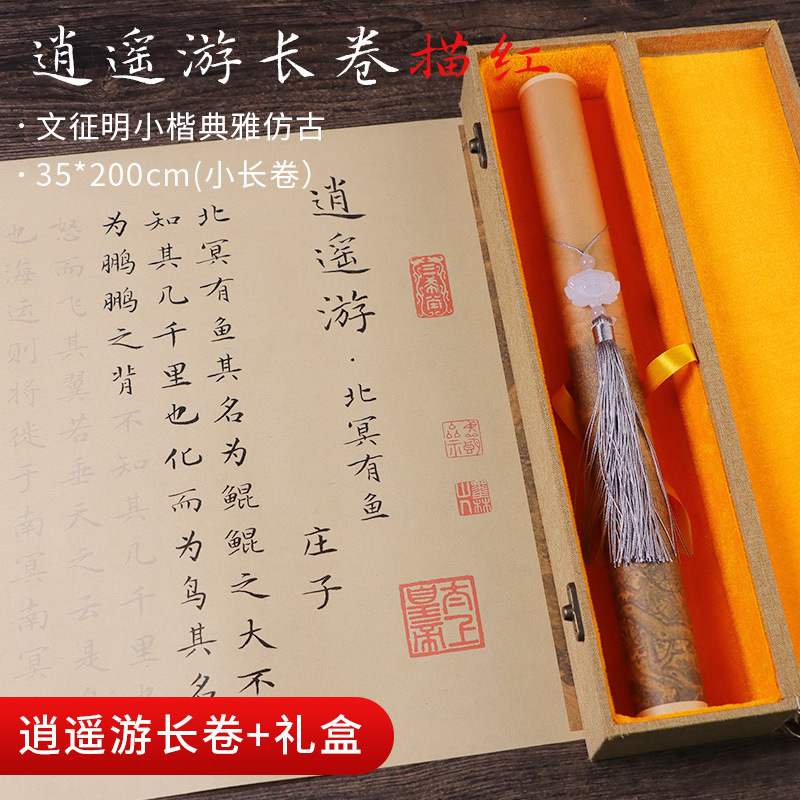 逍遥游长卷描红
·文征明小楷典雅仿古
·35*200cm(小长卷）
逍遥游·北冥有鱼
庄子
北冥有鱼其名为鲲鲲之大不
知其几千里也化而为鸟其名
为鹏鹏之背不知其几千里也
怒而飞其翼若垂天之云是
也海运则将徙于南冥南冥
太上皇帝
逍遥游长卷+礼盒